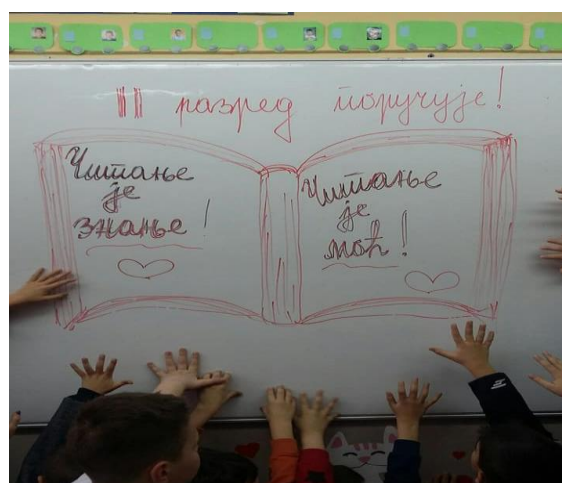 II разред поручује!
Читање
је
знање!
Читање
је
моћ!